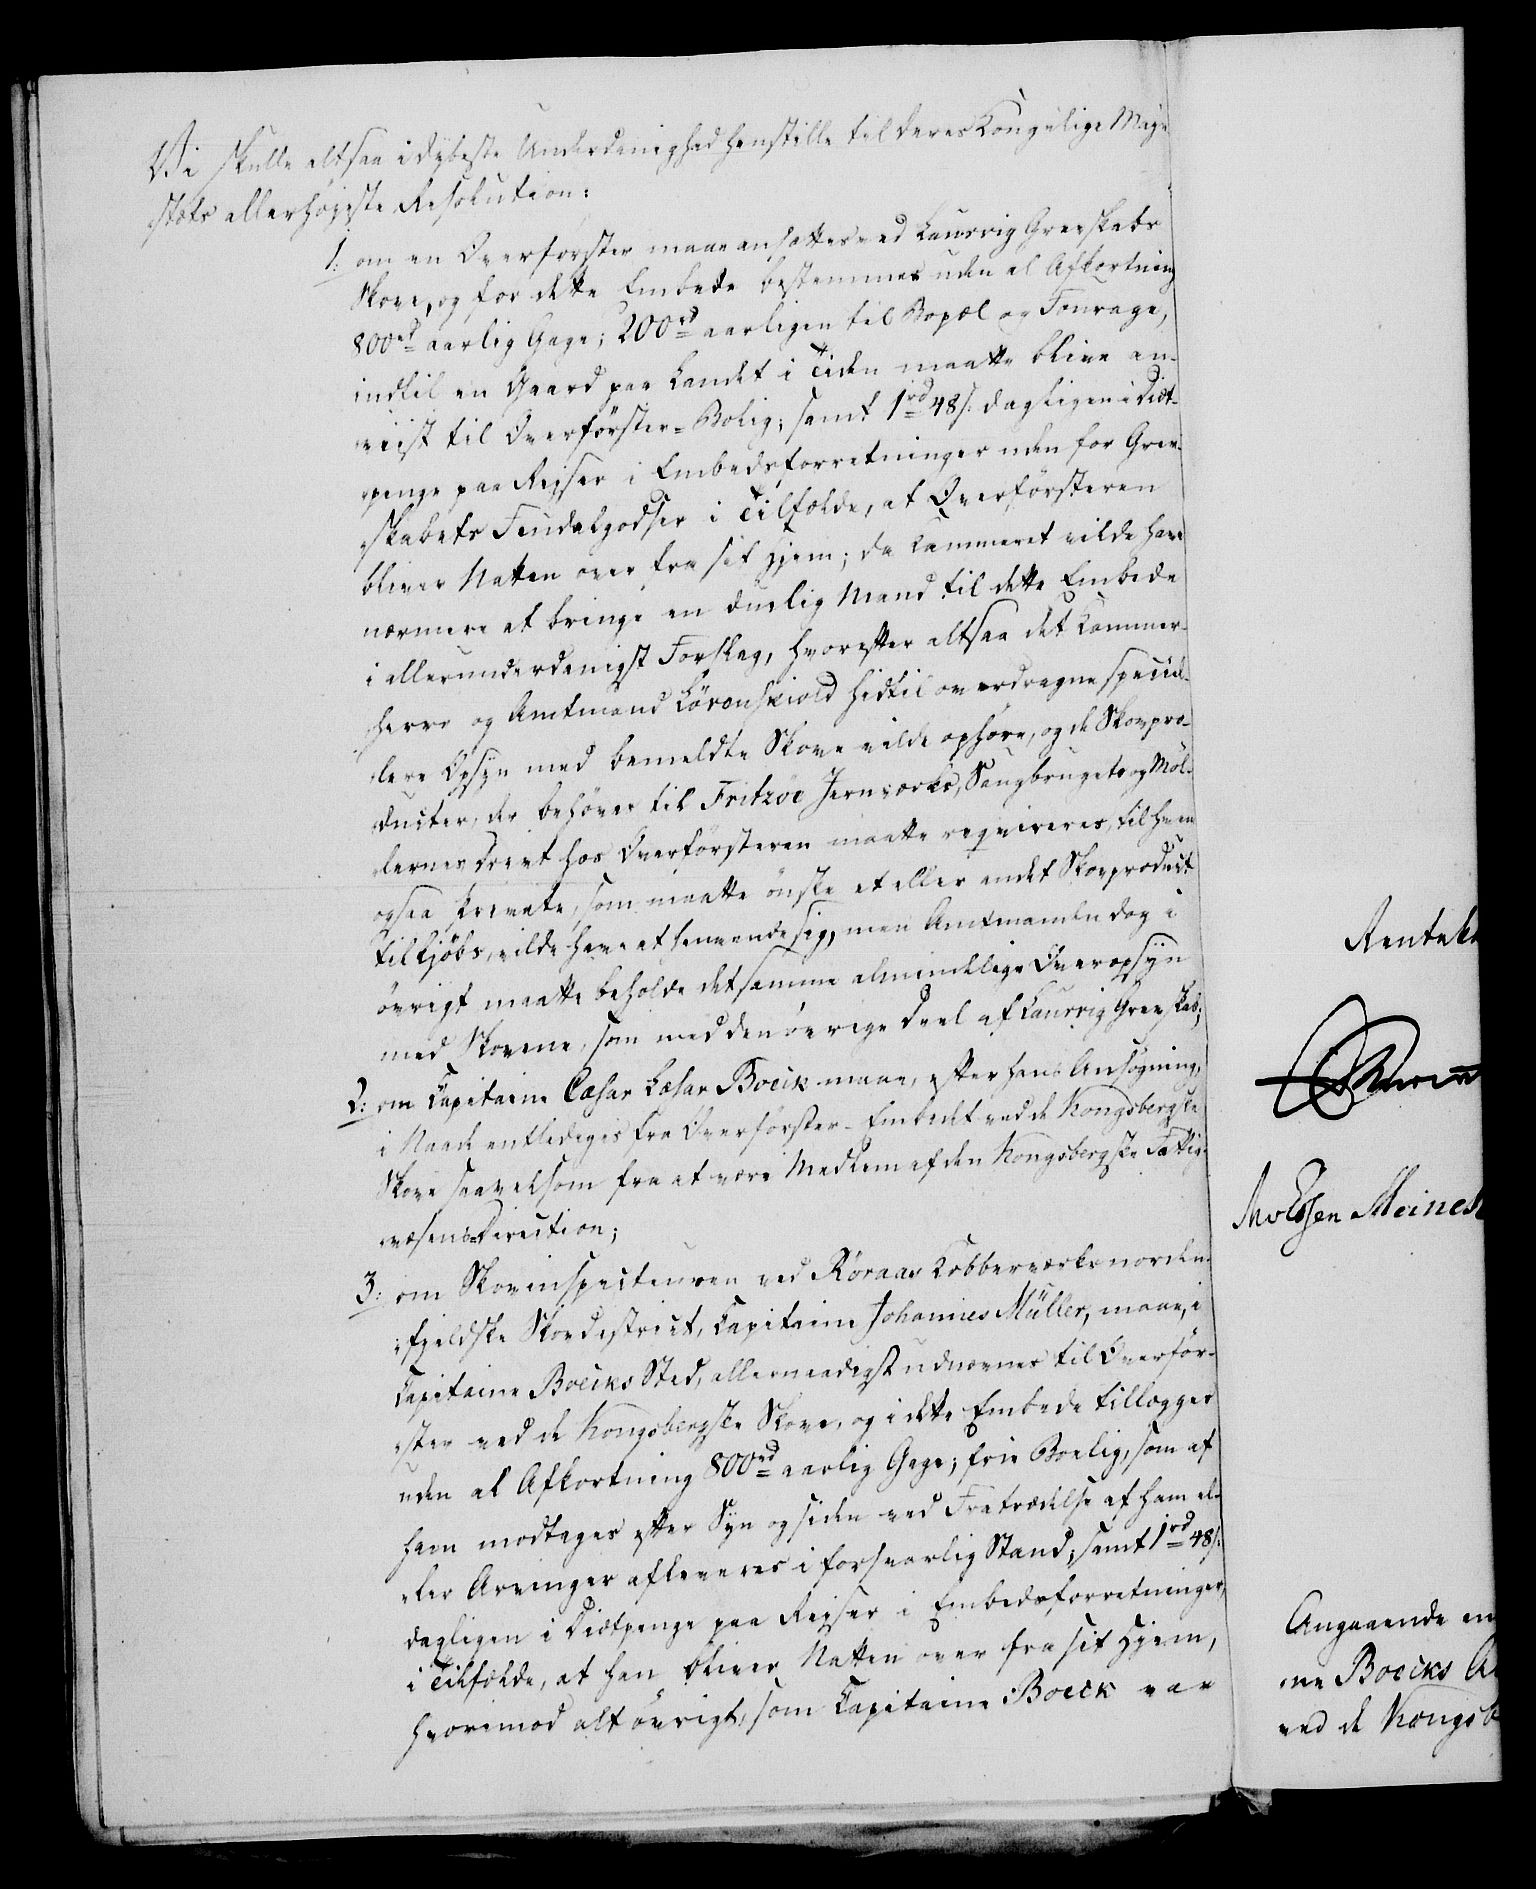 Vi skulle altsaa i dybeste Underdanighed henstille til Deres Kongelige Maje-
stæts allerhøjeste Resolution:
1: om en Overförster maae ansættes ved Laurvig Grevskabs
Skove, og for dette Embede bestemmes uden al Afkortning
800 rd aarlig Gage; 200 rd aarligen til Bopæl og Fourage,
indtil en Gaard paa Landet i Tiden maatte blive an-
viist til Overförster-Bolig; samt 1 rd 48 s. dagligen i Diæt-
penge paa Rejser i Embedsforretninger uden for Grev-
skabets Feudalgodser i Tilfælde, at Overförsteren
bliver Natten over fra sit Hjem; da Kammeret vilde have
nærmere at bringe en duelig Mand til dette Embede
i allerunderdanigst Forslag, hvorefter altsaa det Kammer-
herre og Amtmand Lövenskiold hidtil overdragne speciel-
lere Opsyn med bemeldte Skove vilde ophøre, og de Skovpro-
ducter, der behöves til Fritzöe Jernværks, Saugbrugets og Möl-
lernes Drivt hos Overförsteren maatte reqvireres, til hvem
ogsaa Private, som maatte önske et eller andet Skovproduct
tilkjöbs, vilde have at henvende sig, men Amtmanden dog i
övrigt maatte beholde det samme almindelige Overopsyn
med Skovene, som med den övrige Deel af Laurvig Grevskab;
2: om Capitaine Cæsar Læsar Boeck maae, efter hans Ansögning,
i Naade entlediges fra Overförster-Embedet ved de Kongsbergske
Skove saavelsom fra at være Medlem af den Kongsbergske Fattig-
væsens Direction;
3: om Skovinspecteuren ved Röraas Kobberværks norden-
fjeldske Skovdistrict, Capitaine Johannes Müller, maae, i
Capitaine Boecks Sted, allernaadigst udnævnes til Overför-
ster ved de Kongsbergske Skove, og i dette Embede tillægges
uden al Afkortning 800 rd aarlig Gage; frie Boelig, som af
ham modtages efter Syn og siden ved Fratrædelse af ham el-
ler Arvinger afleveres i forsvarlig Stand; samt 1 rd 48 s.
dagligen i Diætpenge paa Rejser i Embedsforretninger,
i Tilfælde, at han bliver Natten over fra sit Hjem,
hvorimod alt övrigt, som Capitaine Boeck var
Rentek
MvEssen Meinck
Angaaende en
ne Boecks A
ved de Kongsb